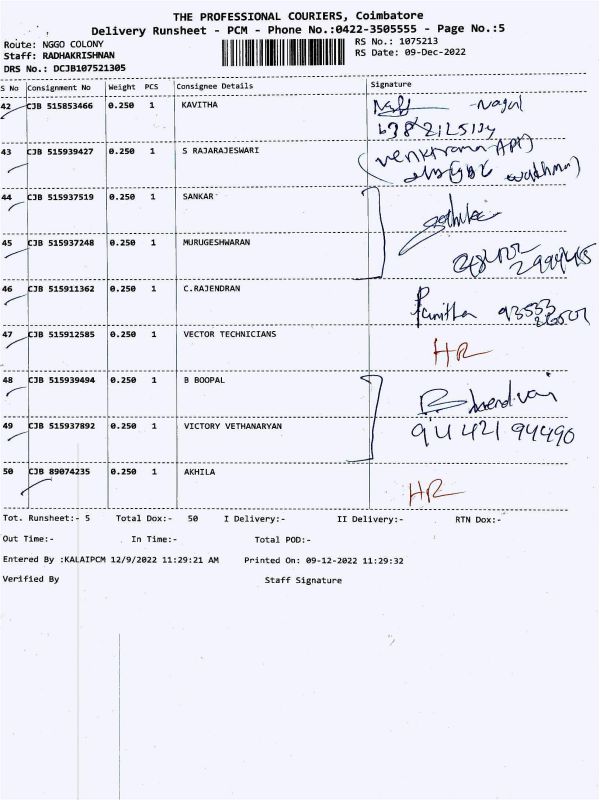 THE PROFESSIONAL COURIERS, Coimbatore
Delivery Runsheet - PCM - Phone No.:0422-3505555 - Page No.:5
Route: NGGO COLONY
RS No.: 1075213
Staff: RADHAKRISHNAN
RS Date: 09-Dec-2022
DRS No.: DCJB107521305
S No Consignment No Weight PCS Consignee Details Signature
42 CJB 515853466 0.250 1 KAVITHA
43 CJB 515939427 0.250 1 S RAJARAJESWARI
44 CJB 515937519 0.250 1 SANKAR
45 CJB 515937248 0.250 1 MURUGESHWARAN
46 CJB 515911362 0.250 1 C.RAJENDRAN
47 CJB 515912585 0.250 1 VECTOR TECHNICIANS HR
48 CJB 515939494 0.250 1 B BOOPAL
49 CJB 515937892 0.250 1 VICTORY VETHANARYAN 94421 94490
50 CJB 89074235 0.250 1 AKHILA HR
Tot. Runsheet:- 5 Total Dox:- 50 I Delivery:- II Delivery:- RTN Dox:-
Out Time:- In Time:- Total POD:-
Entered By :KALAIPCM 12/9/2022 11:29:21 AM Printed On: 09-12-2022 11:29:32
Verified By Staff Signature